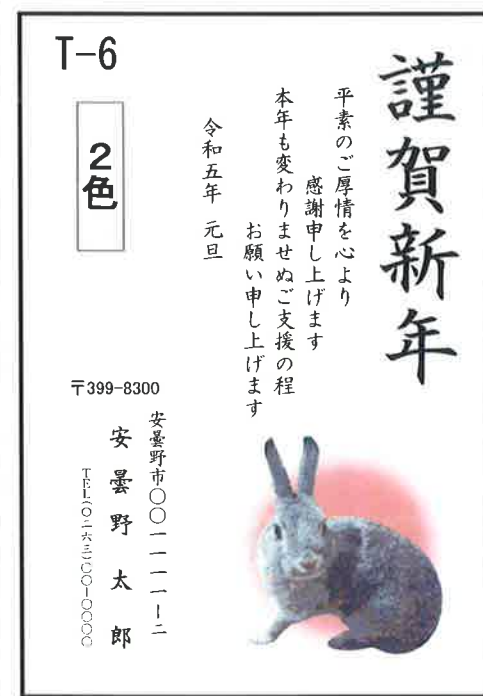 T-6
2色
謹賀新年
平素のご厚情を心より
感謝申し上げます
本年も変わりませぬご支援の程
お願い申し上げます
令和五年 元旦
〒399-8300
安曇野市〇〇一一一一ー二
安曇野太郎
TEL(〇二六三)〇〇ー〇〇〇〇